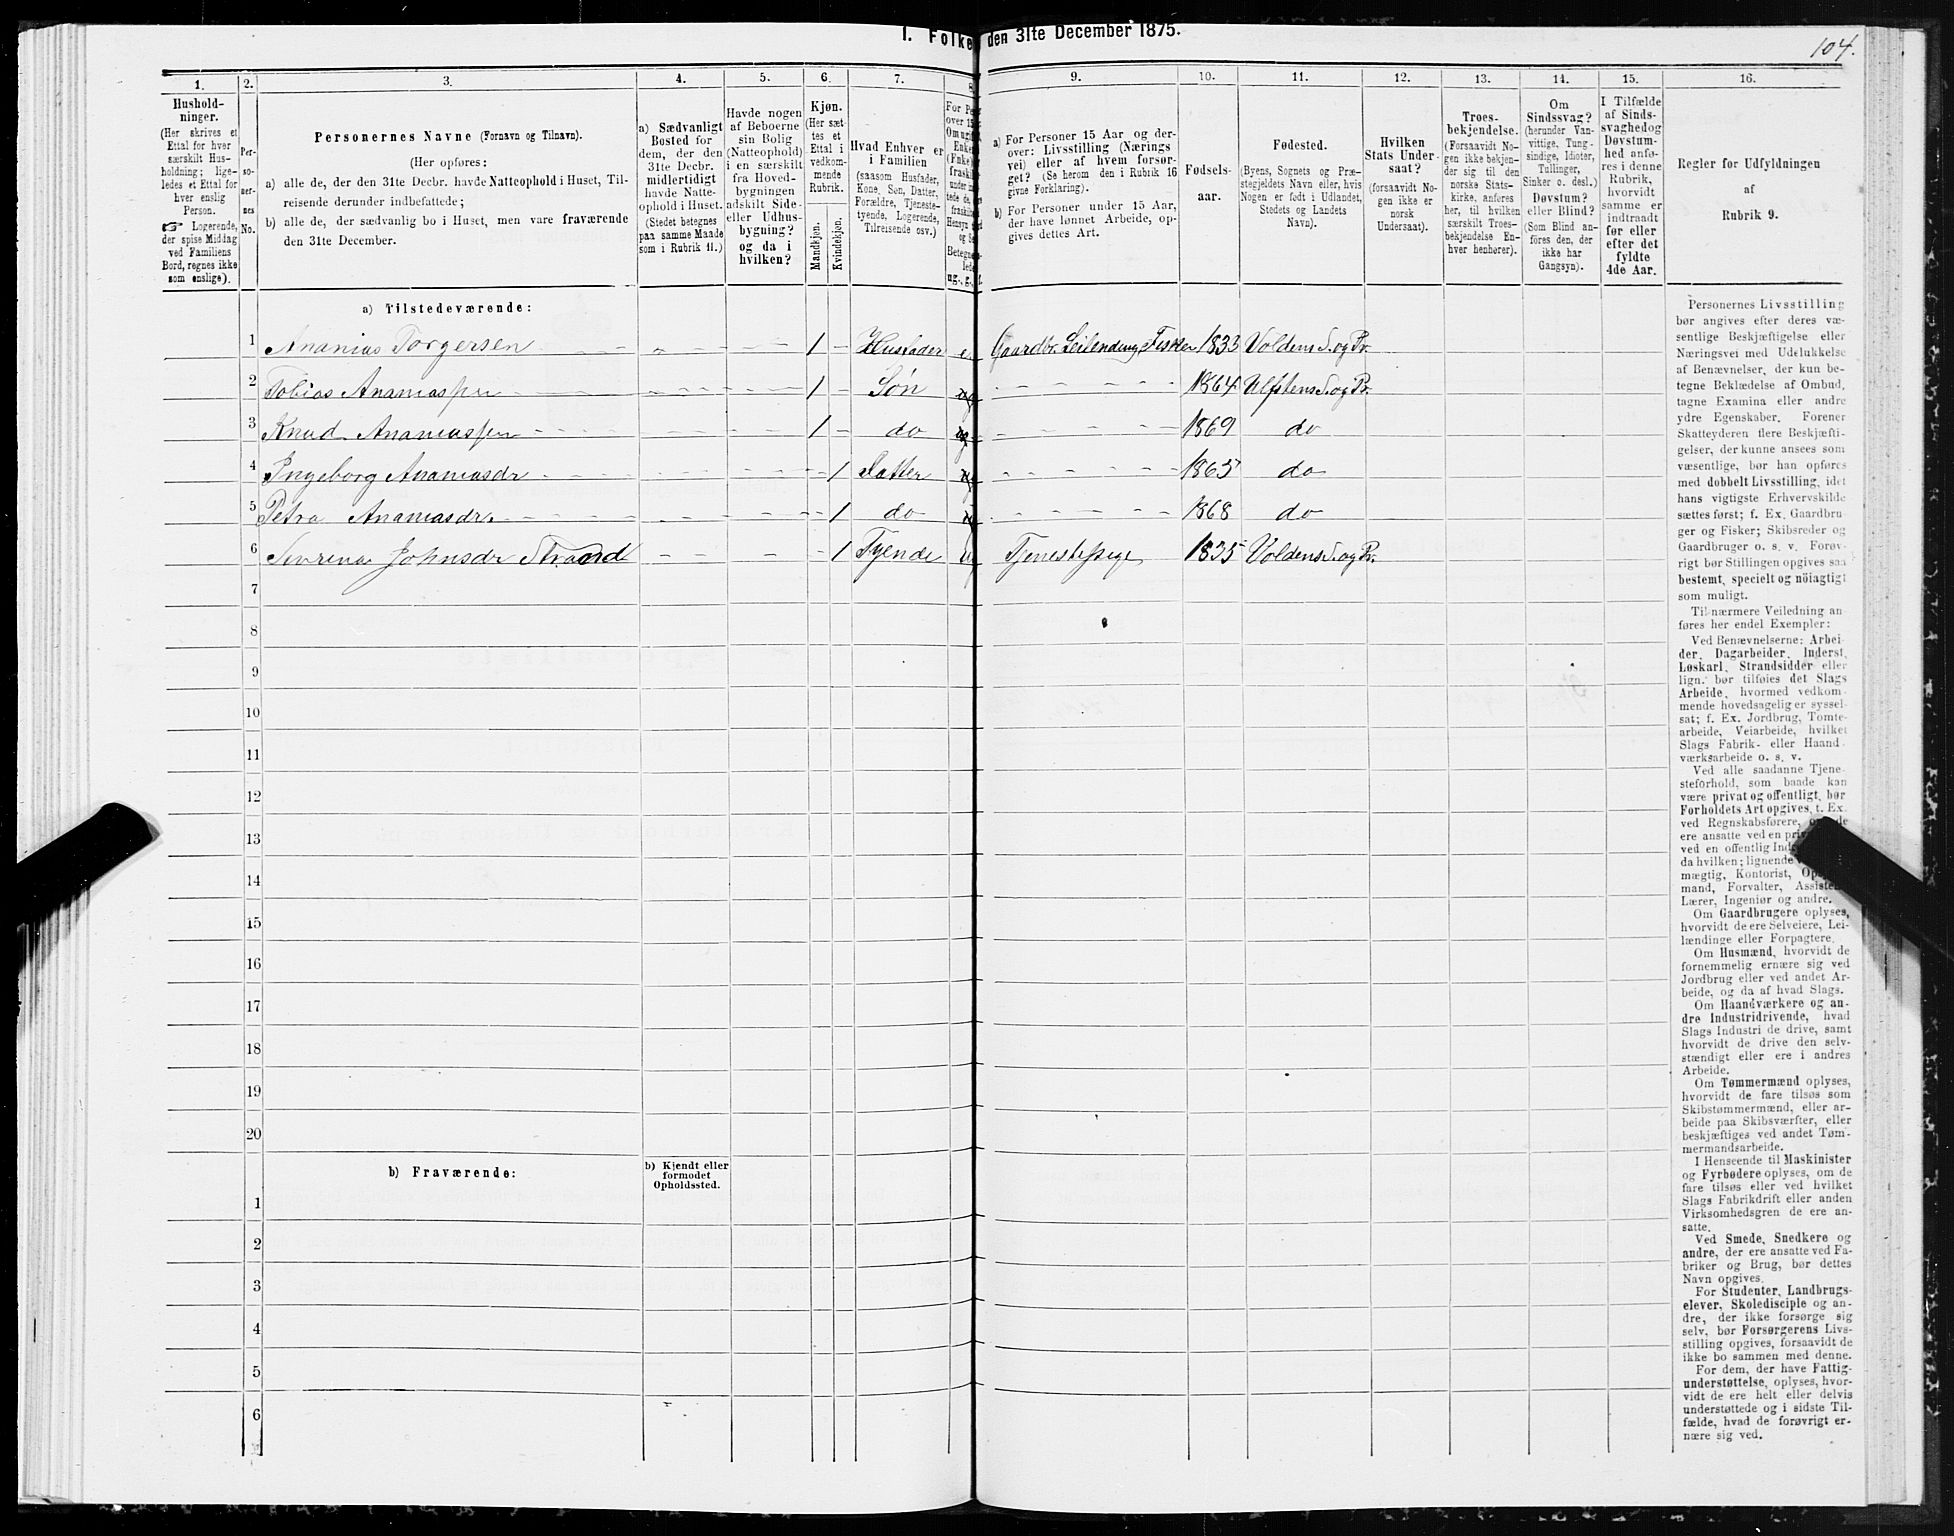 I. Folke den 31te December 1875.
104.
1.
Hushold-
ninger.
(Her skrives et
Ettal for hver
særskilt Hus-
holdning; lige-
ledes et Ettal for
hver enslig
Person.
☞ Logerende,
der spise Middag
ved Familiens
Bord, regnes ikke
som enslige).
2.
Per-
so-
ner-
nes
No.
3.
Personernes Navne (Fornavn og Tilnavn).
(Her opføres:
a) alle de, der den 31te Decbr. havde Natteophold i Huset, Til-
reisende derunder indbefattede;
b) alle de, der sædvanlig bo i Huset, men vare fraværende
den 31te December.
4.
a) Sædvanligt
Bosted for
dem, der den
31te Decbr.
midlertidigt
havde Natte-
ophold i Huset.
(Stedet betegnes
paa samme Maade
som i Rubrik 11.)
5.
Havde nogen
af Beboerne
sin Bolig
(Natteophold)
i en særskilt
fra Hoved-
bygningen
adskilt Side-
eller Udhus-
bygning?
og da i
hvilken?
6.
Kjøn.
(Her sæt-
tes et
Ettal i
vedkom-
mende
Rubrik.
Mandkjøn.
Kvindekjøn.
7.
Hvad Enhver er
i Familien
(saasom Husfader,
Kone, Søn, Datter,
Forældre, Tjeneste-
tyende, Logerende,
Tilreisende osv.)
8
ug., g.,
9.
a) For Personer 15 Aar og der-
over: Livsstilling (Nærings
vei) eller af hvem forsør-
get? (Se herom den i Rubrik 16
givne Forklaring).
b) For Personer under 15 Aar,
der have lønnet Arbeide, op-
gives dettes Art.
10.
Fødsels-
aar.
11.
Fødested.
(Byens, Sognets og Præ-
stegjeldets Navn eller, hvis
Nogen er født i Udlandet,
Stedets og Landets
Navn).
12.
Hvilken
Stats Under-
saat?
(forsaavidt No-
gen ikke er
norsk
Undersaat).
13.
Troes-
bekjendelse.
(Forsaavidt No-
gen ikke bekjen-
der sig til den
norske Stats-
kirke, anføres
her, til hvilken
særskilt Troes-
bekjendelse En-
hver henhører).
14.
Om
Sindssvag?
(herunder Van-
vittige, Tung-
sindige, Idioter,
Tullinger,
Sinker o. desl.)
Døvstum?
eller Blind?
(Som Blind an-
føres den, der
ikke har
Gangsyn).
15.
I Tilfælde
af Sinds-
svaghed og
Døvstum-
hed anfø-
res i denne
Rubrik,
hvorvidt
samme er
indtraadt
før eller
efter det
fyldte
4de Aar.
16.
Regler for Udfyldningen
af
Rubrik 9.
a) Tilstedeværende:
1 Ananias Torgersen 1 Husfader e Gaardbr. Leilending, Fisker 1833 Voldens S. og Pr.
2 Tobias Ananiassen 1 Søn ug 1864 Ulfstens S. og Pr.
3 Knud Ananiassen 1 do ug 1869 do
4 Ingeborg Ananiasdr 1 Datter ug 1865 do
5 Petra Ananiasdr. 1 do ug 1868 do
6 Severina Johnsdr Strand 1 Tyende ug Tjenestepige 1835 Voldens S. og Pr.
7
8
9
10
11
12
13
14
15
16
17
18
19
20
b) Fraværende:
b) Kjendt eller
formodet
Opholdssted.
1
2
3
4
5
6
Personernes Livsstilling
bør angives efter deres væ-
sentlige Beskjæftigelse eller
Næringsvei med Udelukkelse
af Benævnelser, der kun be-
tegne Beklædelse af Ombud,
tagne Examina eller andre
ydre Egenskaber. Forener
Skatteyderen flere Beskjæfti-
gelser, der kunne ansees som
væsentlige, bør han opføres
med dobbelt Livsstilling, idet
hans vigtigste Erhvervskilde
sættes først; f. Ex. Gaardbru-
ger og Fisker; Skibsreder og
Gaardbruger o. s. v. Forøv-
rigt bør Stillingen opgives saa
bestemt, specielt og nöiagtigt
som muligt.
Til nærmere Veiledning an-
føres her endel Exempler:
Ved Benævnelserne: Arbei-
der, Dagarbeider, Inderst,
Løskarl, Strandsidder eller
lign. bør tilføies det Slags
Arbeide, hvormed vedkom-
mende hovedsagelig er syssel-
sat; f. Ex. Jordbrug, Tomte-
arbeide, Veiarbeide, hvilket
Slags Fabrik- eller Haand-
værksarbeide o. s. v.
Ved alle saadanne Tjene-
steforhold, som baade kan
være privat og offentligt, bør
Forholdets Art opgives, t. Ex.
ved Regnskabsførere,
ere ansatte ved en
ved en offentlig
da hvilken; lignende
mægtig, Kontorist,
mand, Forvalter, Assistent,
Lærer, Ingeniør og andre.
Om Gaardbrugere oplyses,
hvorvidt de ere Selveiere, Lei-
lændinge eller Forpagtere.
Om Husmænd, hvorvidt de
fornemmelig ernære sig ved
Jordbrug eller ved andet Ar-
beide, og da af hvad Slags.
Om Haandværkere og an-
dre Industridrivende, hvad
Slags Industri de drive, samt
hvorvidt de drive den selv-
stændigt eller ere i andres
Arbeide.
Om Tømmermænd oplyses,
hvorvidt de fare tilsøs som
Skibstømmermænd, eller ar-
beide paa Skibsværfter, eller
beskjæftiges ved andet Tøm-
mermandsarbeide.
I Henseende til Maskinister
og Fyrbødere oplyses, om de
fare tilsøs eller ved hvilket
Slags Fabrikdrift eller anden
Virksomhedsgren de ere an-
satte.
Ved Smede, Snedkere og
andre, der ere ansatte ved Fa-
briker og Brug, bør dettes
Navn opgives.
For Studenter, Landbrugs-
elever, Skoledisciple og an-
dre, der ikke forsørge sig
selv, bør Forsørgerens Livs-
stilling opgives, forsaavidt de
ikke bo sammen med denne.
For dem, der have Fattig-
understøttelse, oplyses, hvor-
vidt de ere helt eller delvis
understøttede og i sidste Til-
fælde, hvad de forøvrigt er-
nære sig ved.